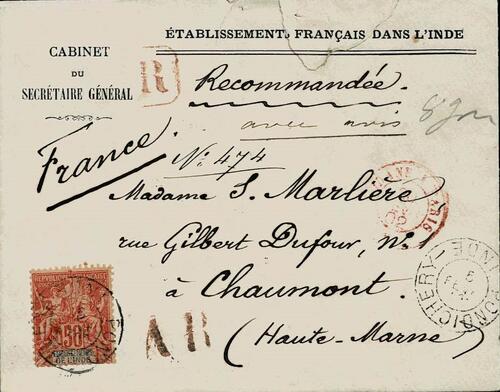 ÉTABLISSEMENTS FRANÇAIS DANS L'INDE
CABINET
DU
SECRÉTAIRE GÉNÉRAL
R
Recommandée.
avec avis
France.
N° 474
Madame S. Marlière
rue Gilbert Dufour, N° 1
à Chaumont.
(Haute-Marne)
PONDICHERY
INDE
5
PARIS
RÉPUBLIQUE FRANÇAISE
50
DE L'INDE
AR